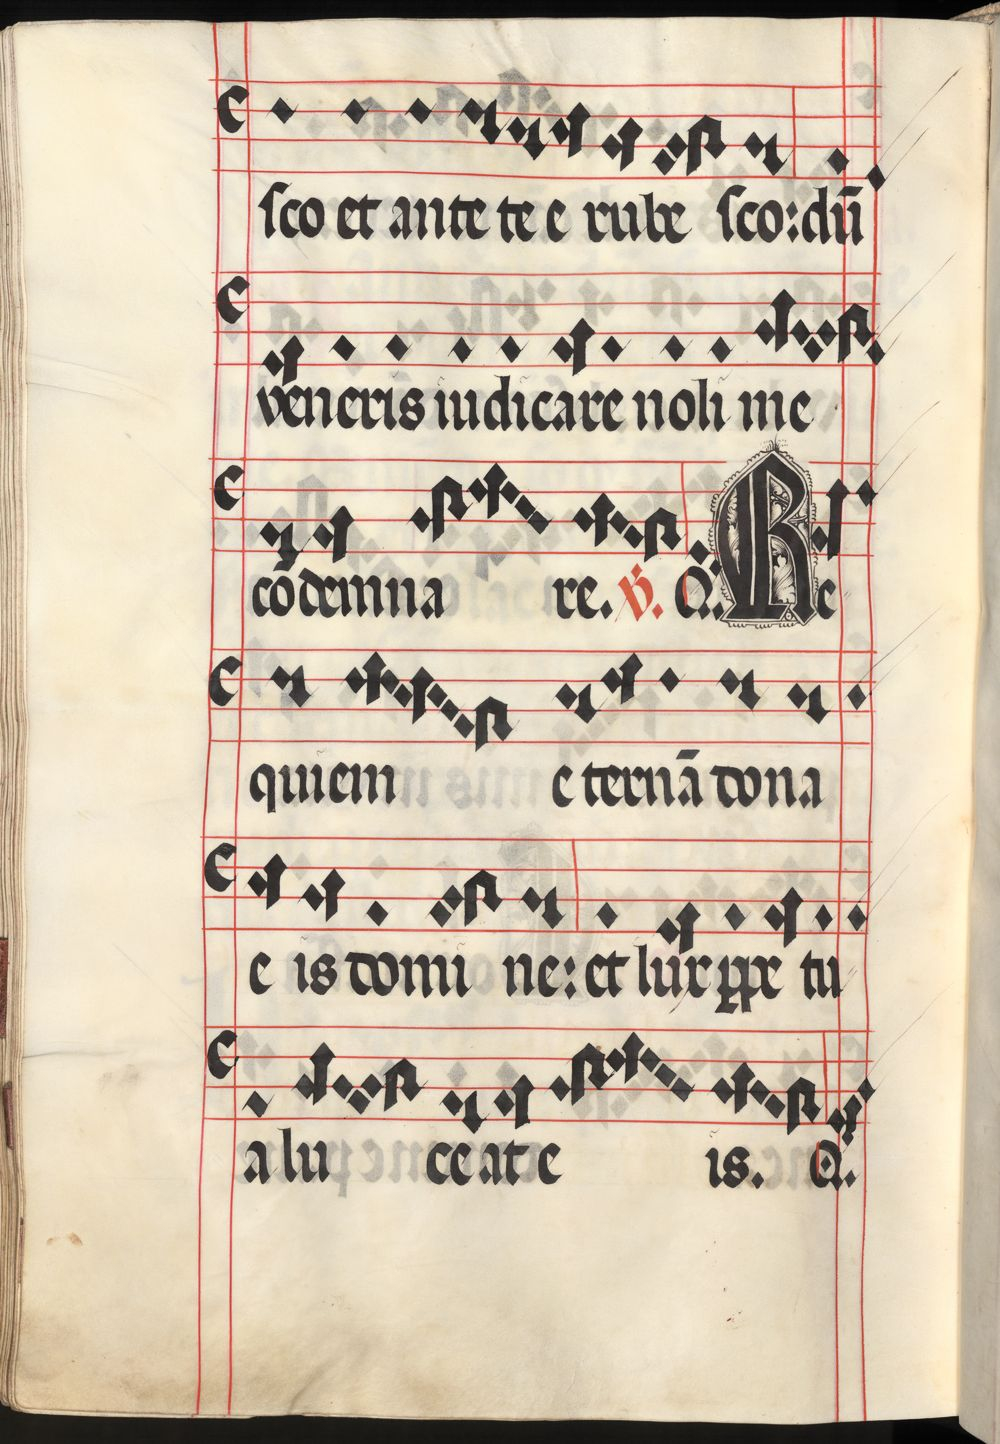 sco et ante te e rube sco: dū
veneris iudicare noli me
cōdemna re. ℣. Q. Re
quiem e ternā dona
e is domi ne: et lux ꝑpe tu
a lu ce at e is. Q.